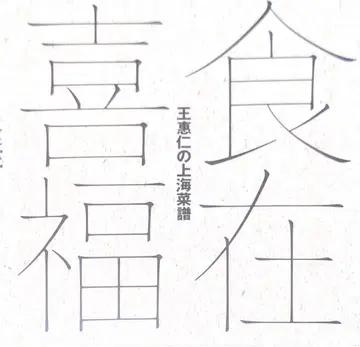 食在
喜福
王惠仁の上海菜譜